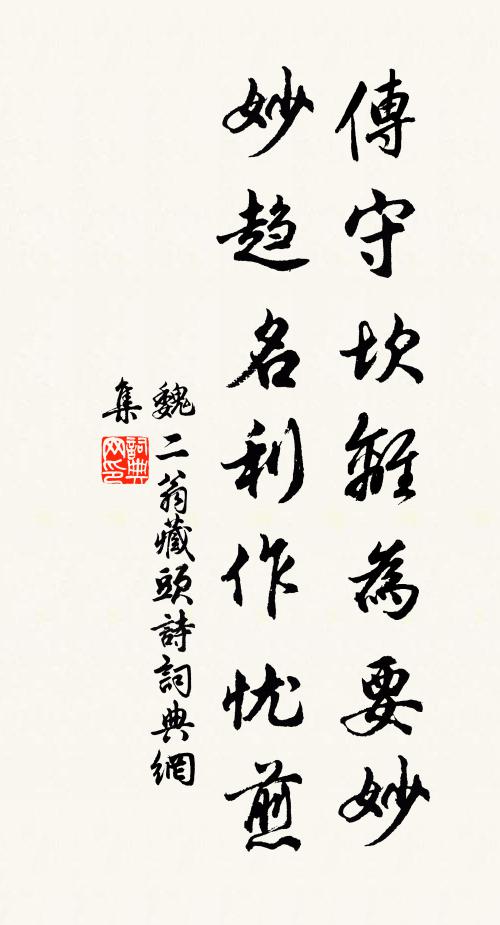 傳守坎離為要妙
妙趨名利作忧煎
魏二翁藏頭詩詞典網
集
詞典網印